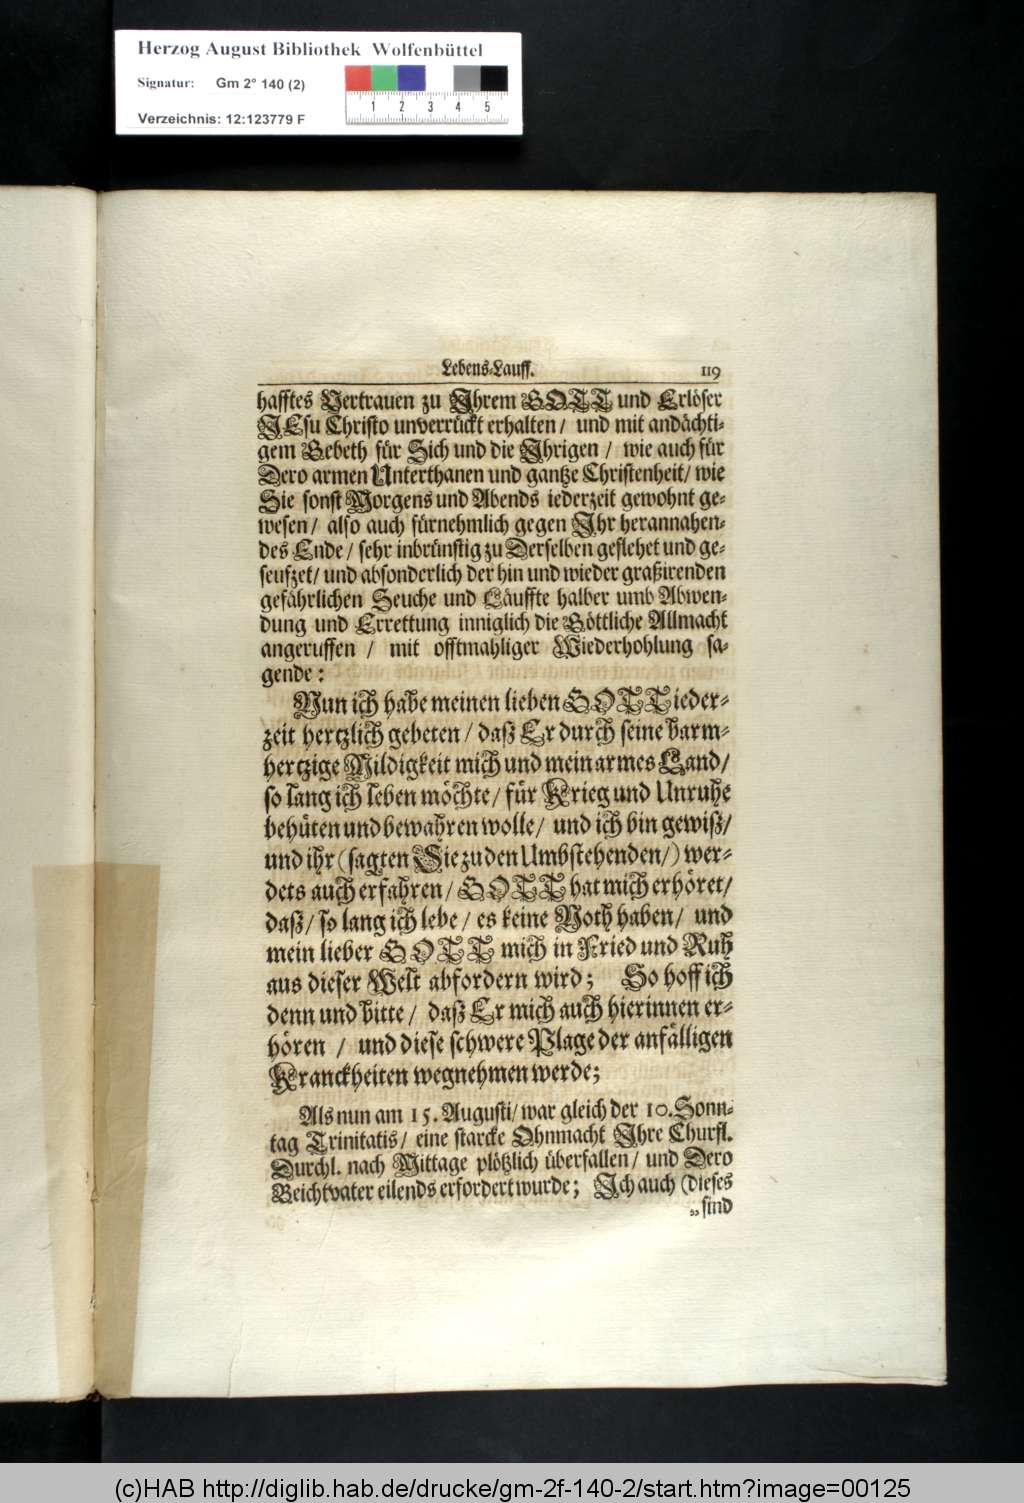 Herzog August Bibliothek Wolfenbüttel
Signatur: Gm 2° 140 (2)
1 2 3 4 5
Verzeichnis: 12:123779 F
Lebens-Lauff. 119
hafftes Vertrauen zu Ihrem GOTT und Erlöser
JEsu Christo unverrückt erhalten / und mit andächti-
gem Gebeth für Sich und die Ihrigen / wie auch für
Dero armen Unterthanen und gantze Christenheit / wie
Sie sonst Morgens und Abends iederzeit gewohnt ge-
wesen / also auch fürnehmlich gegen Ihr herannahen-
des Ende / sehr inbrünstig zu Derselben geflehet und ge-
seufzet / und absonderlich der hin und wieder graßirenden
gefährlichen Seuche und Läuffte halber umb Abwen-
dung und Errettung inniglich die Göttliche Allmacht
angeruffen / mit offtmahliger Wiederhohlung sa-
gende:
Nun ich habe meinen lieben GOTT ieder-
zeit hertzlich gebeten / daß Er durch seine barm-
hertzige Mildigkeit mich und mein armes Land /
so lang ich leben möchte / für Krieg und Unruhe
behüten und bewahren wolle / und ich bin gewiß /
und ihr (sagten Sie zu den Umbstehenden /) wer-
dets auch erfahren / GOTT hat mich erhöret /
daß / so lang ich lebe / es keine Noth haben / und
mein lieber GOTT mich in Fried und Ruh
aus dieser Welt abfordern wird; So hoff ich
denn und bitte / daß Er mich auch hierinnen er-
hören / und diese schwere Plage der anfälligen
Kranckheiten wegnehmen werde;
Als nun am 15. Augusti / war gleich der 10. Sonn-
tag Trinitatis / eine starcke Ohnmacht Ihre Churfl.
Durchl. nach Mittage plötzlich überfallen / und Dero
Beichtvater eilends erfordert wurde; Ich auch (dieses
„ sind
(c)HAB http://diglib.hab.de/drucke/gm-2f-140-2/start.htm?image=00125